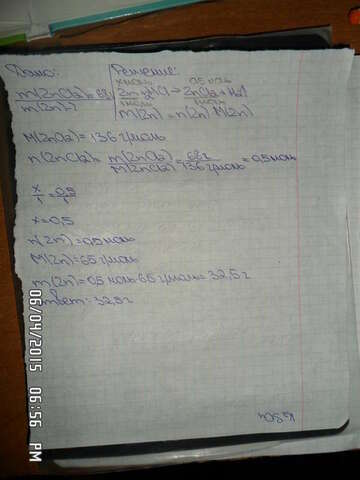 Дано:
Решение:
x моль 0,5 моль
m(ZnCl₂)=68г
Zn+2HCl→ZnCl₂+H₂↑
1моль 1моль
m(Zn)-?
m(Zn)=n(Zn)·M(Zn)
M(ZnCl₂)=136 г/моль
n(ZnCl₂)= m(ZnCl₂)/M(ZnCl₂)=68г/136 г/моль=0,5моль
x/1=0,5/1
x=0,5
n(Zn)=0,5моль
M(Zn)=65г/моль
m(Zn)=0,5 моль·65г/моль=32,5г
Ответ: 32,5г
06/04/2015 06:56 PM